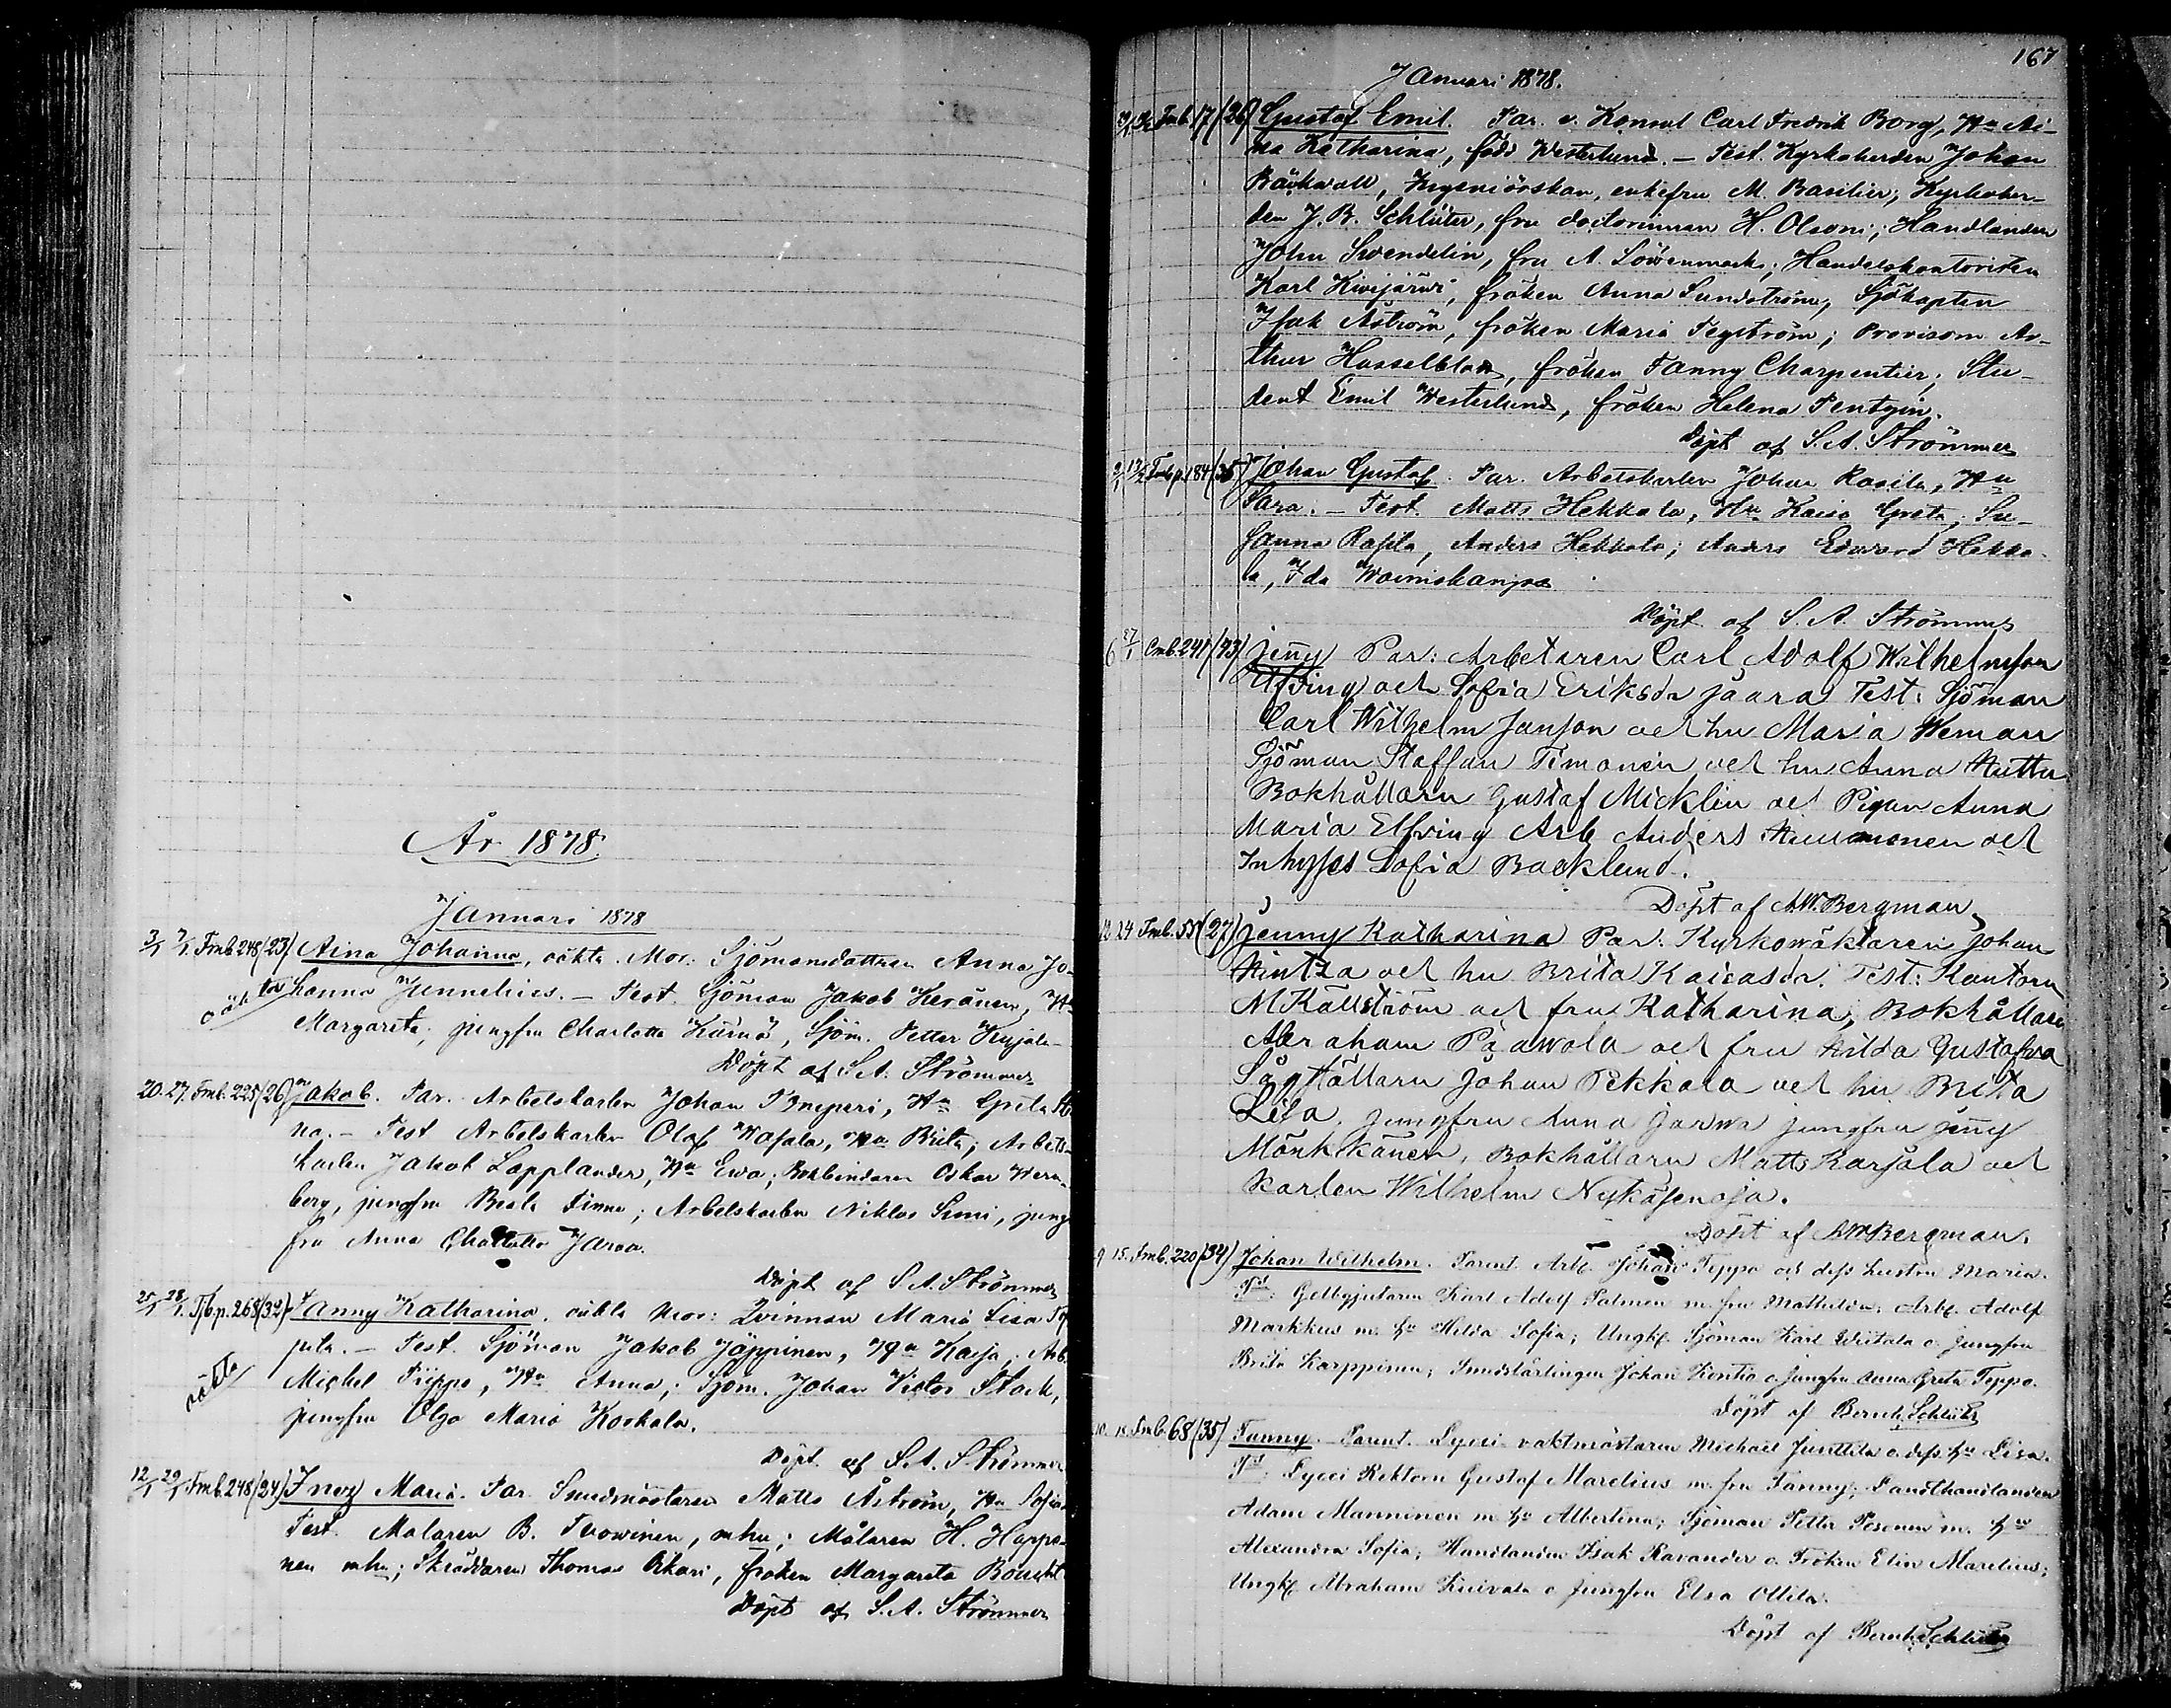 År 1878
Januari 1878
3/1 7/1 Fmb. 248 (23) Aina Johanna, oäkta. Mor: Sjömansdottren Anna Jo-
oäkta hanna Junnelius. – Test. Sjöman Jakob Keränen, Hu
Margareta; jungfru Charlotta Kärnä, Sjöm. Petter Kujala
Döpt af S. A. Strömmer
20. 27. Fmb. 225 (26) Jakob. Par. Arbetskarlen Johan Hu Greta
na. – Test Arbetskarlen Olof Wasala, Hu Brita; Arbets-
karlen Jakob Lapplander, Hu Ewa; Bokbindaren Oskar Wern-
berg, jungfru Finna; Arbetskarlen Niklas Simi, jung
fru Anna Charlotta Jarva.
Döpt af S. A. Strömmer
25/1 28/1 p. 268 (32) Fanny Katharina, oäkta Mor: Qvinnan Maria Lisa
oäkta – Test. Sjöman Jakob Jäppinen, Hu Kaisa; Arb.
Michel Piippo, Hu Anna; Sjöm. Johan Victor Stark,
jungfru Olga Maria Koskala.
Döpt af S. A. Strömmer
12/1 29/1 Fmb. 248 (24) Inez Maria. Par. Smedmästaren Matts Åström, Hu Sofia
Test. Målaren B. Tuowinen, m hu; Målaren H. Happo-
nen m hu; Skräddaren Thomas Orkari, fröken Margareta Boucht
Döpt af S. A. Strömmer
167
Januari 1878.
Fmb. 17 (26) Gustaf Emil. Par. v. Konsul Carl Fredrik Borg, Hu Ai-
na Katharina, född Westerlund. – Test. Kyrkoherden Johan
Bäckvall, Ingeniörskan, enkefru M. Basilier; Kyrkoher-
den J. B. Schlüter, fru doctorinnan H. Olsoni; Handlanden
John Swendelin, fru A. Löwenmark; Handelskontoristen
Karl Kiwijärwi, fröken Anna Sundström; Sjökapten
Isak Åström, fröken Maria Tegström; Provisorn Ar-
thur Hasselblatt, fröken Fanny Charpentier; Stu-
dent Emil Westerlund, fröken Helena Pentzin.
Döpt af S. A. Strömmer
Fmb p. 184 (35) Johan Gustaf. Par. Arbetskarlen Johan Rasila, Hu
Sara. – Test. Matts Hekkala, Hu Kaisa Greta; Su-
sanna Rasila, Anders Hekkala; Anders Edvard Hekka-
la, Ida
Döpt af S. A. Strömmer
6 27/1 Cmb. 241 (93) Jeny Par: Arbetaren Carl Adolf Wilhelmson
Elfving och Sofia Eriksdr Jaara Test: Sjöman
Carl Wilhelm Janson och hu Maria Weman
Sjöman Staffan Timonen och hu Anna Huttu
Bokhållarn Gustaf Micklin och Pigan Anna
Maria Elfving Arb Anders och
Inhyses Sofia Backlund.
Döpt af A.W. Bergman
12 24 Fmb. 55 (27) Jenny Katharina Par: Kyrkowäktaren Johan
Hintsa och hu Brita Kaisasdr. Test: Kantorn
M Källström och fru Katharina, Bokhållarn
Abraham Paawola och fru Hilda Gustafva
Sågställarn Johan Pekkala och hu Brita
Lisa, jungfru Anna Jarwa jungfru Jeny
Mönkkänen, Bokhållarn Matts Karjala och
Karlen Wilhelm Nykäsenoja.
Döpt af A.W. Bergman.
9 15. Fmb. 220 (34) Johan Wilhelm. Parent. Arb. Johan Teppo och dess hustru Maria.
Tst: Gelbgjutaren Karl Adolf Palmen m. fru Mathilda; Arb. Adolf
Markkus m. hu Hilda Sofia; Ungk. Sjöman Karl Wiitala o jungfru
Brita Karppinen; Smedslärlingen Johan Kontio o jungfru Anna Greta Teppo.
Döpt af Bernh. Schlüter
10. Fmb. 68 (35) Fanny. Parent. Lycei vaktmästaren Michael Junttila o. dess hu Lisa.
Tst: Lycei Rektorn Gustaf Marelius m. fru Fanny; Landthandlanden
Adam Manninen m. hu Albertina; Sjöman Petter Pesonen m. hu
Alexandra Sofia; Handlanden Isak Ravander o. Fröken Elin Marelius;
Ungk. Abraham Kuivala o jungfru Elsa Ollila.
Döpt af Bernh. Schlüter